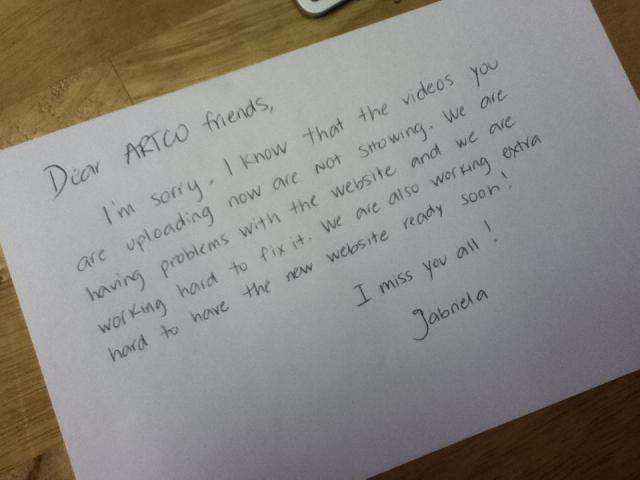 Dear ARTCO friends,
I'm sorry. I know that the videos you
are uploading now are not showing. We are
having problems with the website and we are
working hard to fix it. We are also working extra
hard to have the new website ready soon!
I miss you all!
Gabriela